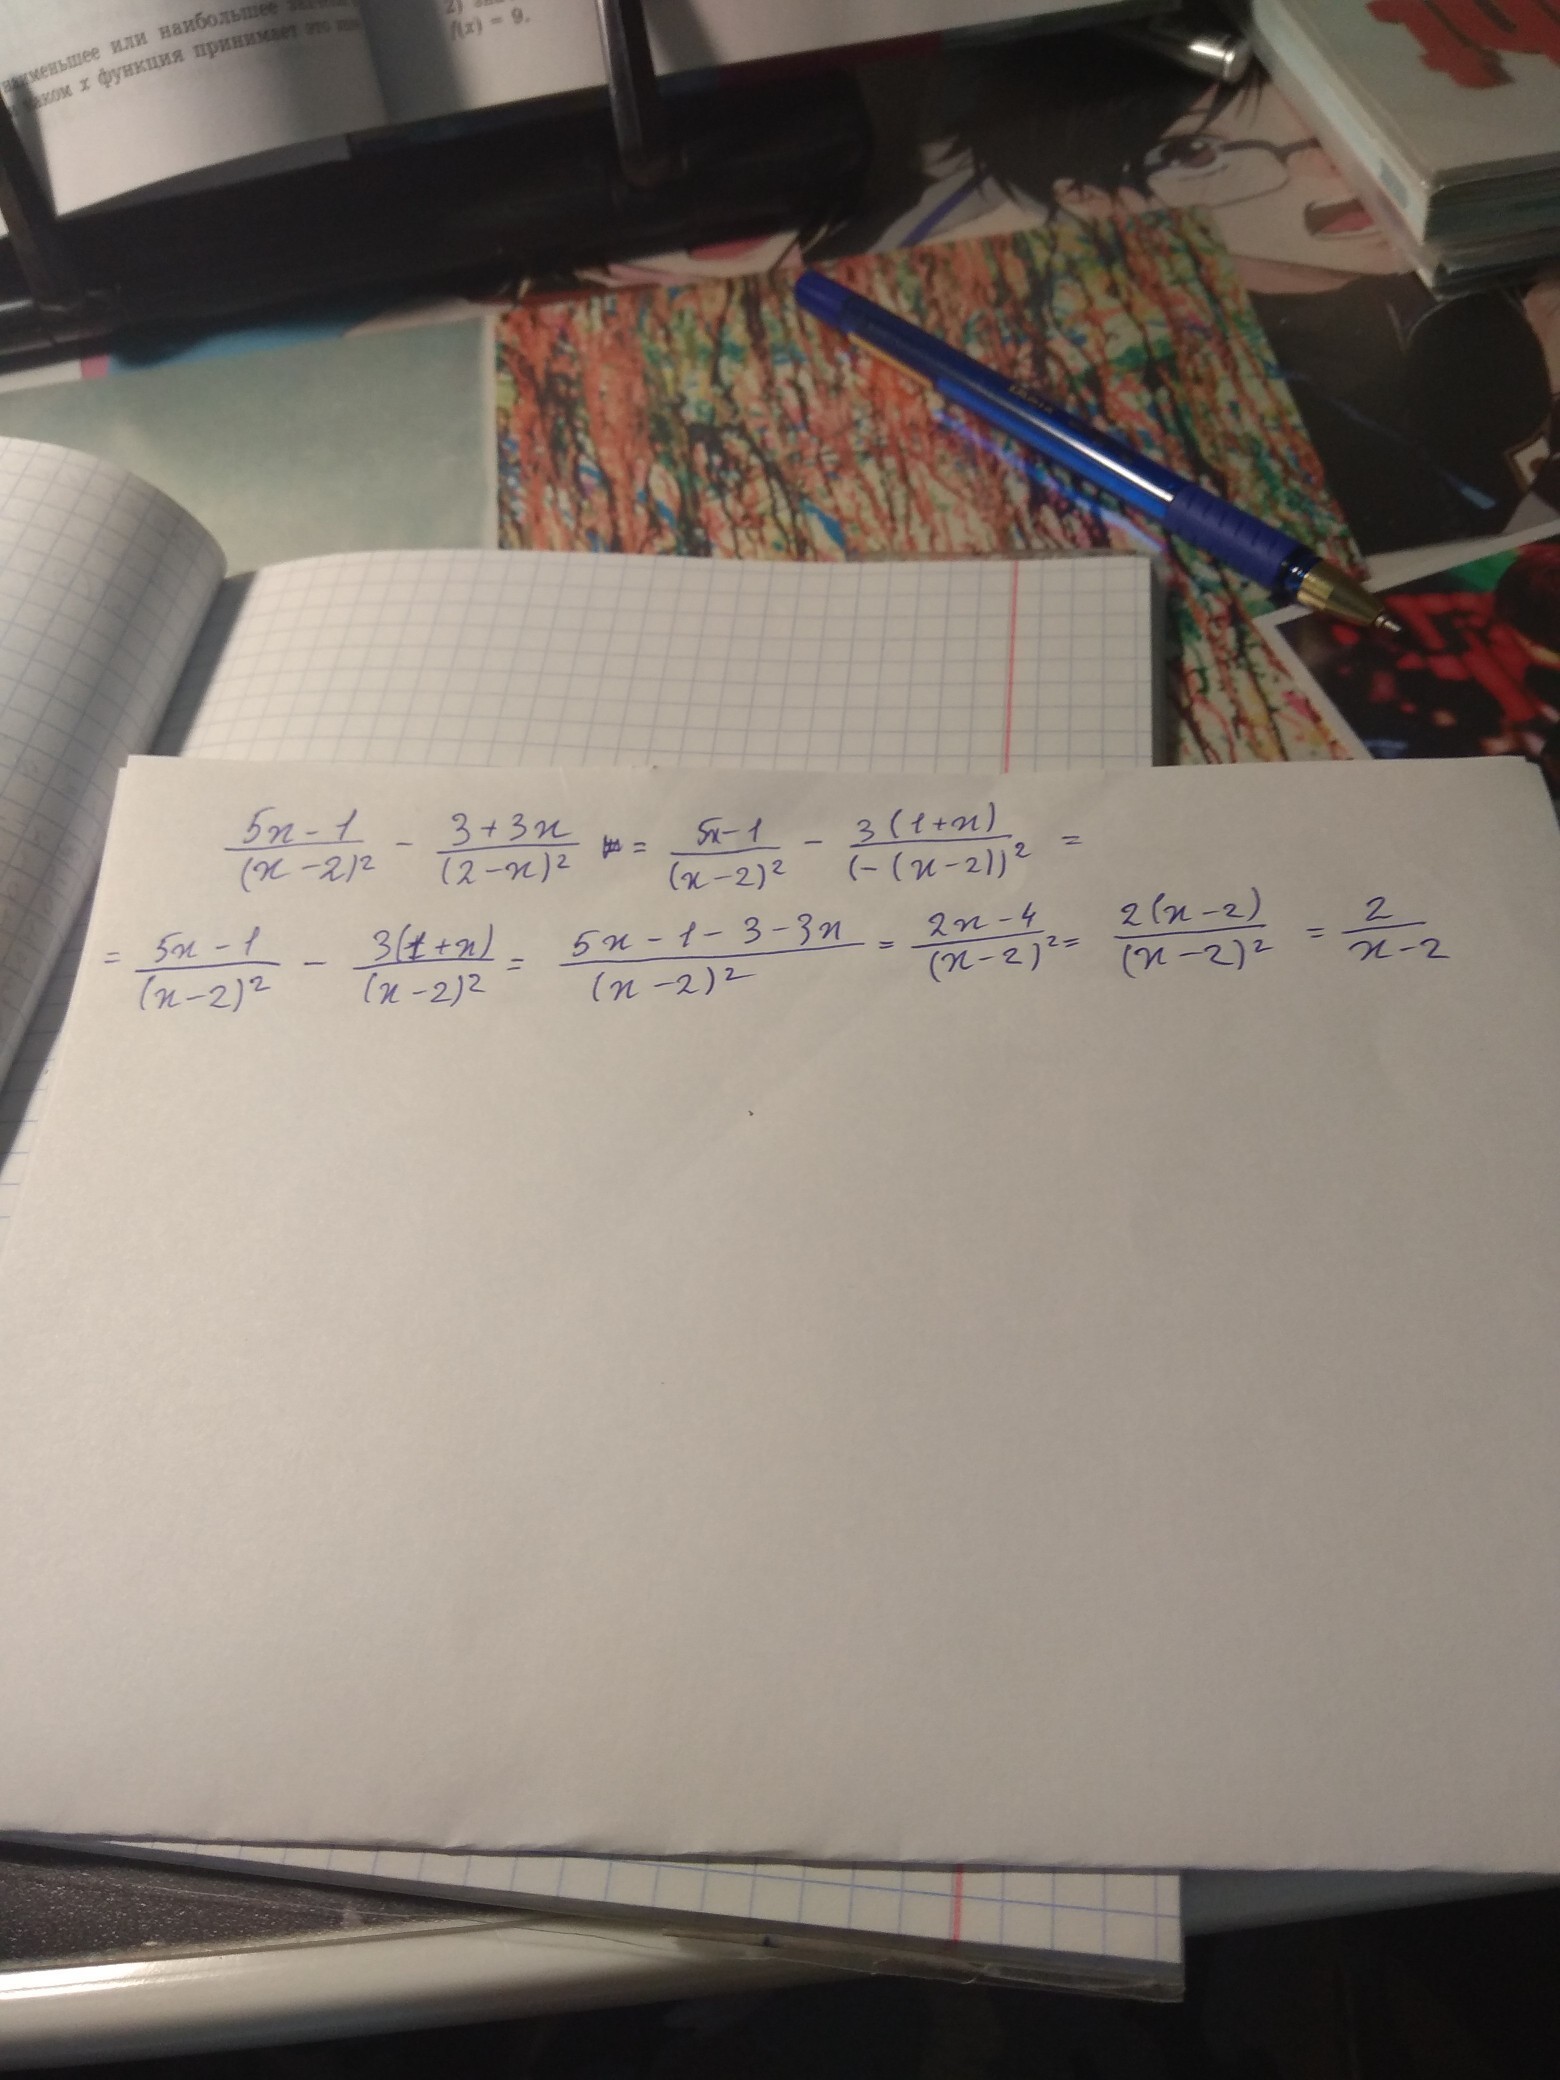 наименьшее или наибольшее
каком x функция принимает это
2)
f(x) = 9.
(5x-1)/(x-2)² - (3+3x)/(2-x)² = (5x-1)/(x-2)² - 3(1+x)/(-(x-2))² =
= (5x-1)/(x-2)² - 3(1+x)/(x-2)² = (5x-1-3-3x)/(x-2)² = (2x-4)/(x-2)² = 2(x-2)/(x-2)² = 2/(x-2)